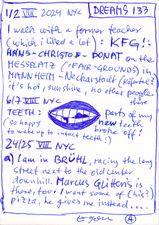 1/2 VIII 2024 NYC DREAMS 133
I walk with a former teacher
(which I liked a lot): KFG!:
HANS-CHRISTOF-DONAT on the
MESSPLATZ (=FAIR-GROUNDS) in
MANNHEIM-Neckarstadt
it's hot, sunshine, no other people
there
6/7 VIII NYC
TEETH: parts of my
(so happy new teeth
to wake up to intact teeth!) broke off!
24/25 VIII NYC
a) I am in BRÜHL, racing the long
street next to the old center
downhill. Marcus Glittens is
there, too. I want some of (his?)
pizza, he gives me instead...
4